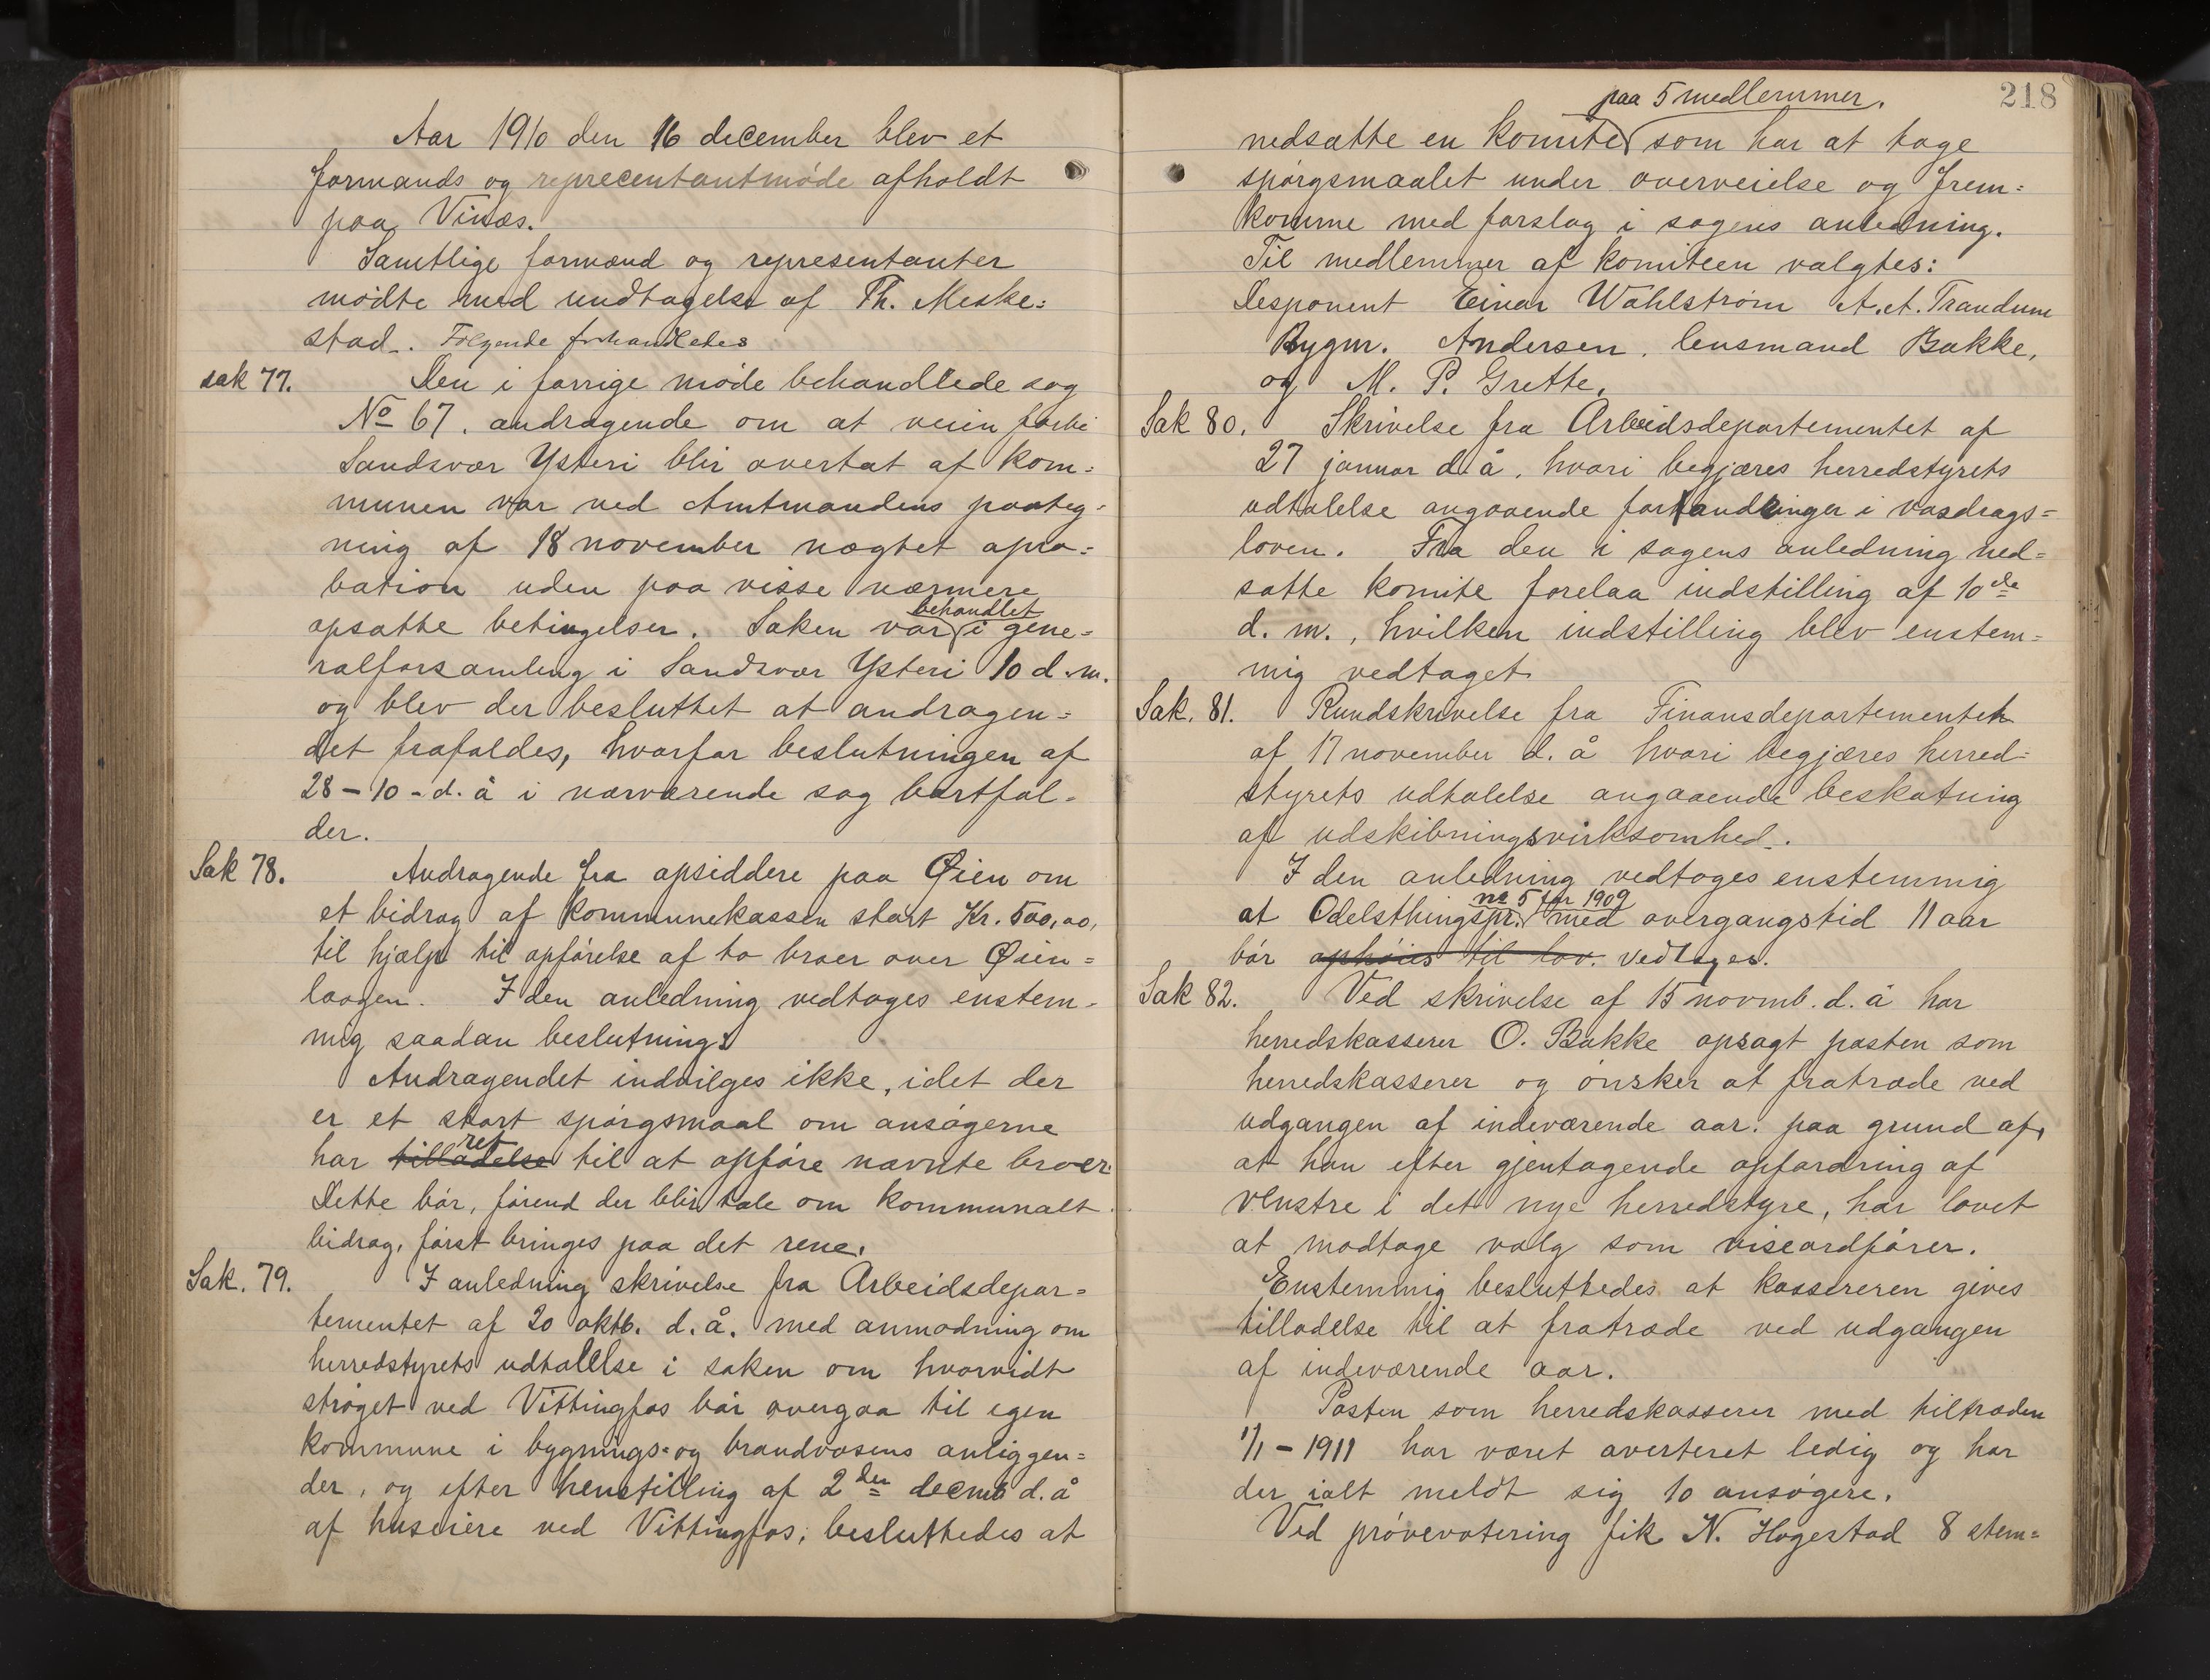 Aar 1910 den 16 december blev et
formands og reprecentantmøde afholdt
paa Vinæs.
Samtlige formænd og representanter
mødte med undtagelse af Th. Meske=
stad. Følgende forhandledes
sak 77. Den i forrige møde behandlede sag
No 67. andragende om at veien forbi
Sandsvær Ysteri blir overtat af kom=
munen var ved Amtmandens paateg=
ning af 18 november nægtet apro=
bation uden paa visse nærmere
behandlet
opsatte betingelser. Saken var i gene=
ralforsamling i Sandsvær Ysteri 10 d.m.
og blev der besluttet at andragen=
det frafaldes, hvorfor beslutningen af
28-10-d.å i nærværende sag bortfal=
der.
Sak 78. Andragende fra opsiddere paa Øien om
et bidrag af kommunekassen stort Kr. 500,00,
til hjælp til opførelse af to broer over Øien=
laagen. I den anledning vedtoges enstem=
mig saadan beslutning:
Andragendet indvilges ikke, idet der
er et stort spørgsmaal om ansøgerne
ret
har tilladelse til at opføre nævnte broer.
Dette bør, førend der blir tale om kommunalt
bidrag, først bringes paa det rene.
Sak. 79. I anledning skrivelse fra Arbeidsdepar=
tementet af 20 oktb. d.å. med anmodning om
herredstyrets udtallelse i saken om hvorvidt
strøget ved Vittingfos bør overgaa til egen
kommune i bygnings- og brandvæsens anliggen=
der, og efter henstilling af 2den decmb d.å
af huseiere ved Vittingfos, besluttedes at
218
paa 5 medlemmer.
nedsætte en komite som har at tage
spørgsmaalet under overveielse og frem=
komme med forslag i sagens anledning.
Til medlemmer af komiteen valgtes:
Desponent Einar Wahlstrøm A.A. Trandum
Bygm. Andersen, lensmand Bakke,
og M. P. Grette.
Sak 80. Skrivelse fra Arbeidsdepartementet af
27 januar d.å. hvori begjæres herredstyrets
udtalelse angaaende forhandlinger i vasdrags=
loven. Fra den i sagens anledning ned=
satte komite forelaa indstilling af 10de
d.m., hvilken indstilling blev enstem=
mig vedtaget
Sak. 81. Rundskrivelse fra Finansdepartementet
af 17 november d.å hvori begjæres herred=
styrets udtalelse angaaende beskatning
af udskibningsvirksomhed.
I den anledning vedtoges enstemmig
no 5 for 1909
at Odelsthingspr. med overgangstid 11 aar
bør ophøies til lov. vedtages.
Sak 82. Ved skrivelse af 15 novmb. d.å har
herredskasserer O. Bakke opsagt posten som
herredskasserer og ønsker at fratræde ved
udgangen af indeværende aar. paa grund af,
at han efter gjentagende opfordring af
venstre i det nye herredstyre, har lovet
at modtage valg som viseordfører.
Enstemmig besluttedes at kassereren gives
tilladelse til at fratræde ved udgangen
af indeværende aar.
Posten som herredskasserer med tiltræden
1/1-1911 har været averteret ledig og har
der ialt meldt sig 10 ansøgere.
Ved prøvevotering fik N. Hogestad 8 stem=